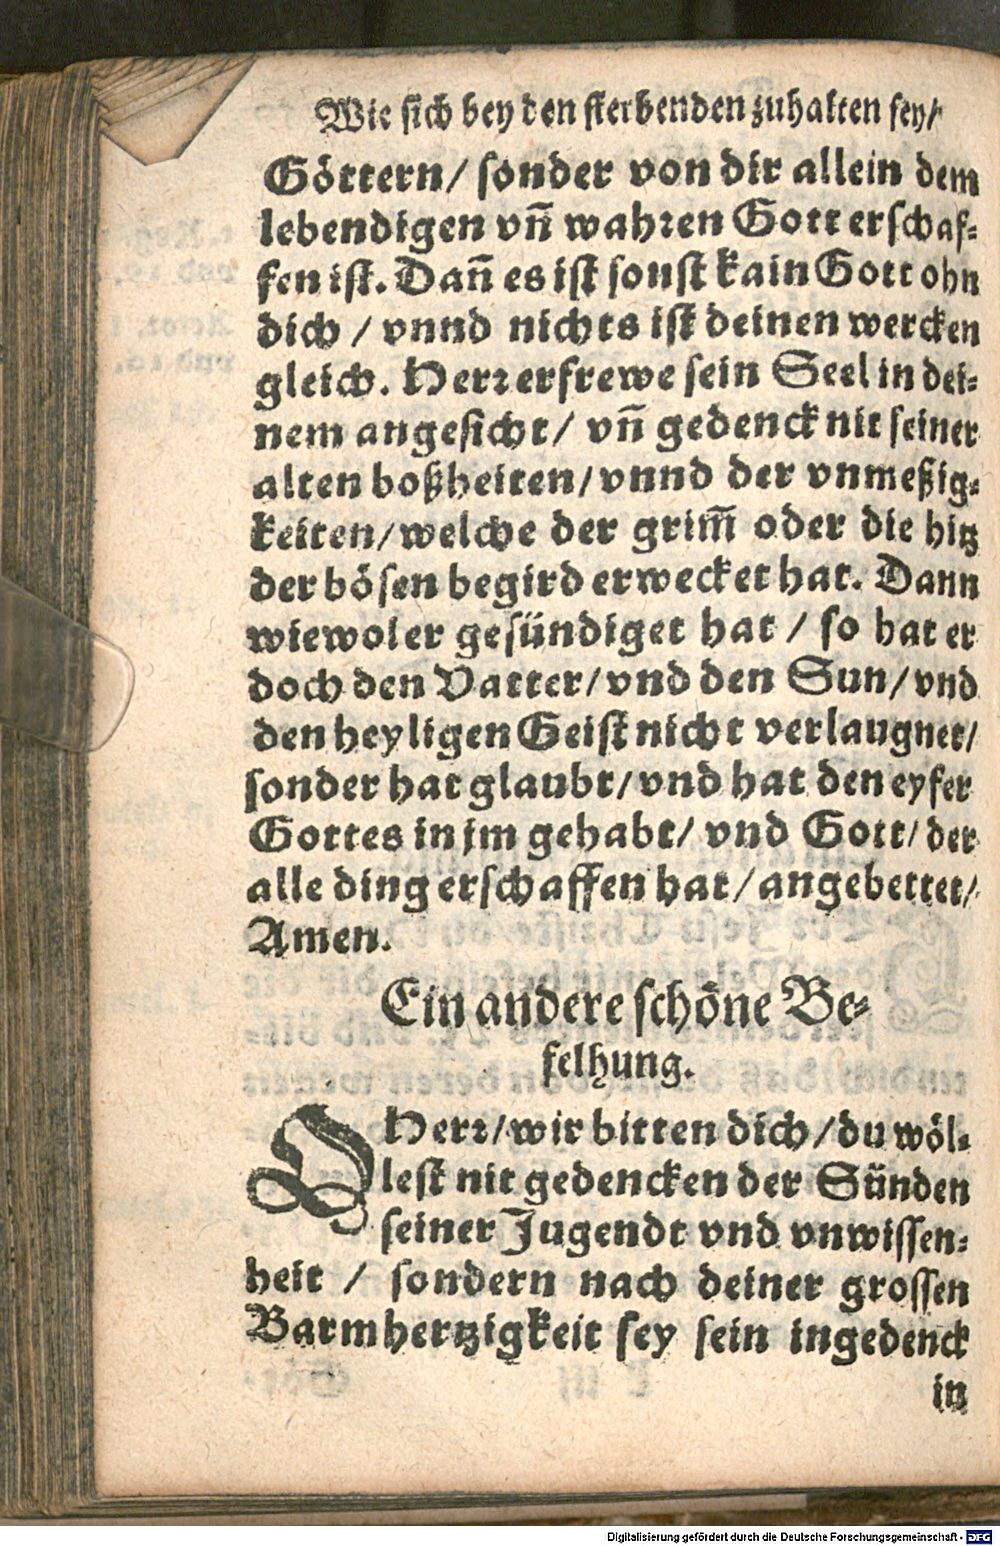 Wie sich bey den sterbenden zuhalten sey/
Göttern/ sonder von dir allein dem
lebendigen vñ wahren Gott erschaf-
fen ist. Dañ es ist sonst kain Gott ohn
dich / vnnd nichts ist deinen wercken
gleich. Herr erfrewe sein Seel in dei-
nem angesicht/ vñ gedenck nit seiner
alten boßheiten/ vnnd der vnmeßig-
keiten/ welche der grim̃ oder die hitz
der bösen begird erwecket hat. Dann
wiewol er gesündiget hat / so hat er
doch den Vatter/ vnd den Sun/ vnd
den heyligen Geist nicht verlaugnet/
sonder hat glaubt/ vnd hat den eyfer
Gottes in jm gehabt/ vnd Gott/ der
alle ding erschaffen hat/ angebettet/
Amen.
Ein andere schöne Be-
felhung.
O Herr/ wir bitten dich/ du wöl-
lest nit gedencken der Sünden
seiner Jugendt vnd vnwissen-
heit / sondern nach deiner grossen
Barmhertzigkeit sey sein ingedenck
in
Digitalisierung gefördert durch die Deutsche Forschungsgemeinschaft - DFG